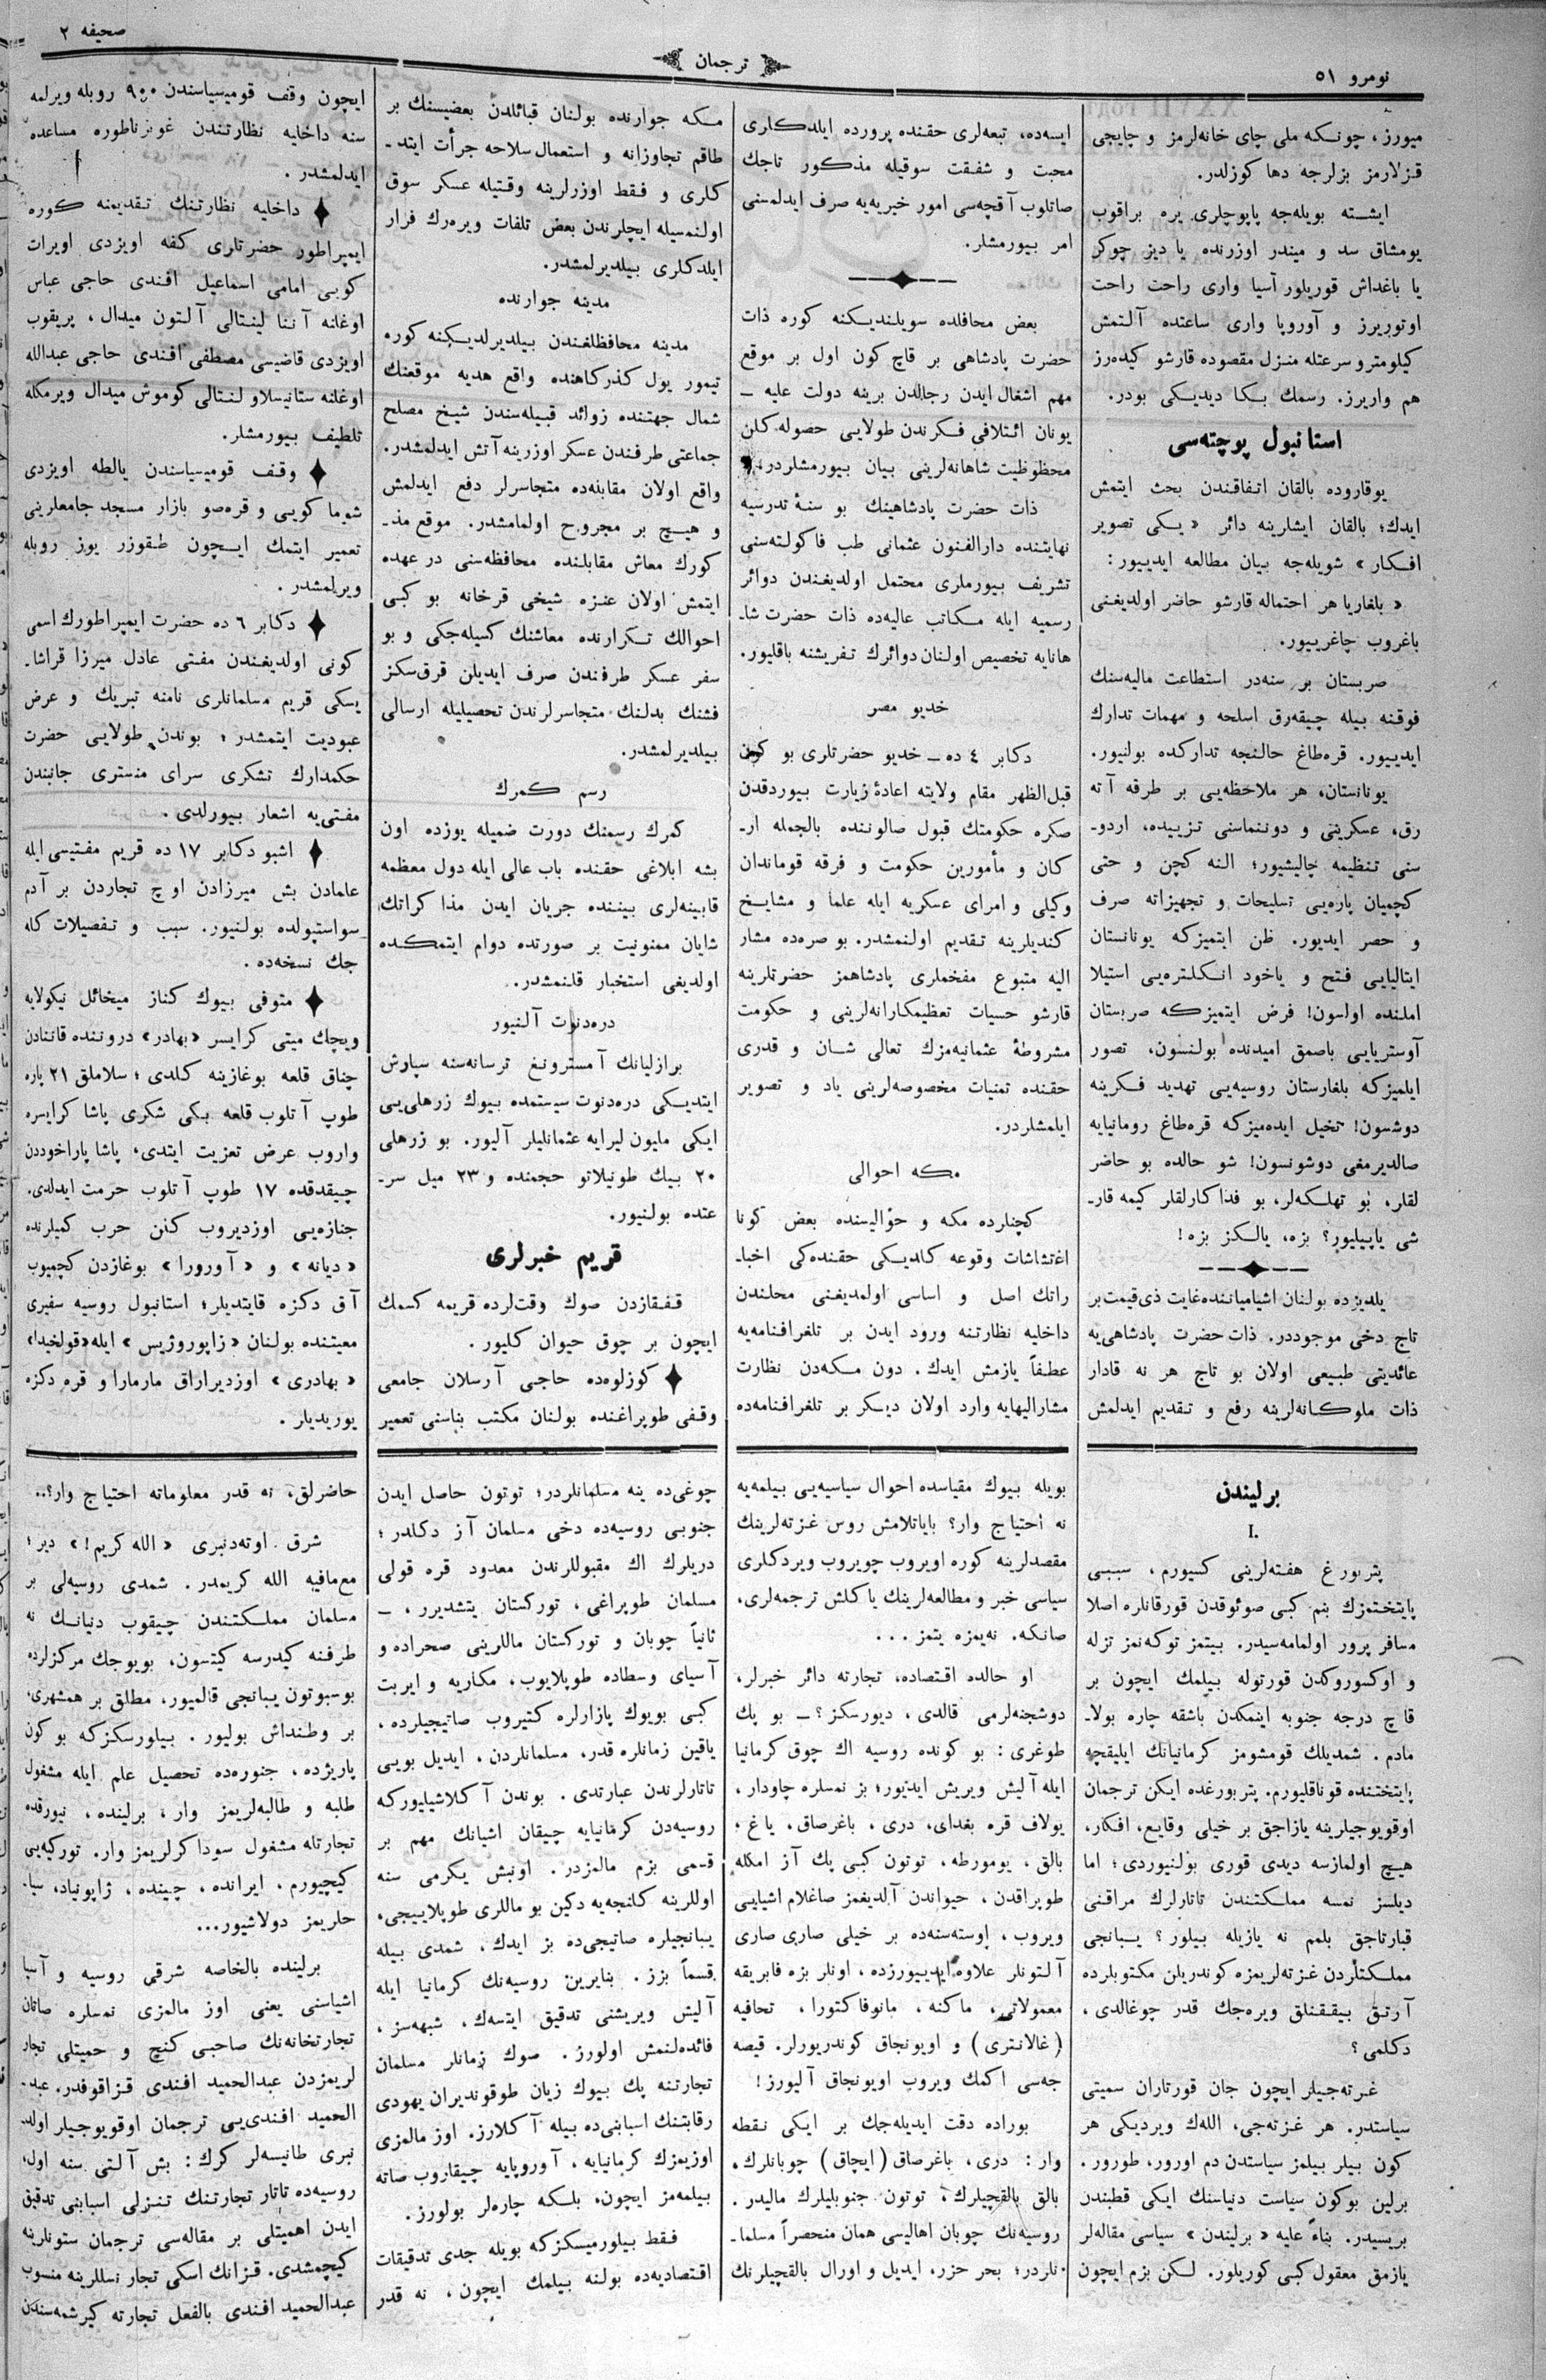 نومرو ٥١
ترجمان
صحیفه ٢
میورز، چونكه ملی چای خانه‌لرمز و چایجی
قزلارمز بزلرجه دها كوزلدر.
ایشته بویله‌جه پاپوچلری یره براقوب
یومشاق سد و میندر اوزرنده یا دیز چوكر
یا باغداش قوریلور آسیا واری راحت راحت
اوتوریرز و آوروپا واری ساعتده آلتمش
كیلومترو سرعتله منزل مقصوده قارشو كیده‌رز
هم واریرز. رسمك بكا دیدیكی بودر.
استانبول پوچته‌سی
یوقاروده بالقان اتفاقندن بحث ایتمش
ایدك؛ بالقان ایشلرینه دائر « یكی تصویر
افكار » شویله‌جه بیان مطالعه ایدییور:
« بلغاریا هر احتماله قارشو حاضر اولدیغنی
باغروب چاغرییور.
صربستان بر سنه‌در استطاعت مالیه‌سنك
فوقنه بیله چیقه‌رق اسلحه و مهمات تدارك
ایدییور. قره‌طاغ حالنجه تداركده بولنیور.
یونانستان، هر ملاحظه‌یی بر طرفه آته
رق، عسكرینی و دونانماسنی تزییده، اردو-
سنی تنظیمه چالیشیور؛ النه كچن و حتی
كچمیان پاره‌یی تسلیحات و تجهیزاته صرف
و حصر ایدیور. ظن ایتمیزكه یونانستان
ایتالیایی فتح و یاخود انكلتره‌یی استیلا
املنده اولسون! فرض ایتمیزكه صربستان
آوستریایی باصمق امیدنده بولنسون، تصور
ایلمیزكه بلغارستان روسیه‌یی تهدید فكرینه
دوشسون! تخیل ایده‌میزكه قره‌طاغ رومانیایه
صالدیرمغی دوشونسون! شو حالده بو حاضر
لقلر، بو تهلكه‌لر، بو فداكارلقلر كیمه قار-
شی یاپیلیور؟ بزه، یالكز بزه!
یلدیزده بولنان اشیا میاننده غایت ذی‌قیمت بر
تاج دخی موجوددر. ذات حضرت پادشاهی‌یه
عائدیتی طبیعی اولان بو تاج هر نه قادار
ذات ملوكانه‌لرینه رفع و تقدیم ایدلمش
ایسه‌ده، تبعه‌لری حقنده پرورده ایلدكلری
محبت و شفقت سوقیله مذكور تاجك
صاتلوب آقچه‌سی امور خیریه‌یه صرف ایدلمسنی
امر بیورمشلر.
بعض محافلده سویلندیكنه كوره ذات
حضرت پادشاهی بر قاچ كون اول بر موقع
مهم اشغال ایدن رجالدن برینه دولت علیه —
یونان ائتلافی فكرندن طولایی حصوله كلن
محظوظیت شاهانه‌لرینی بیان بیورمشلردر.
ذات حضرت پادشاهینك بو سنۀ تدرسیه
نهایتنده دارالفنون عثمانی طب فاكولته‌سنی
تشریف بیورملری محتمل اولدیغندن دوائر
رسمیه ایله مكاتب عالیه‌ده ذات حضرت شا-
هانایه تخصیص اولنان دوائرك تفریشنه باقلیور.
خدیو مصر
دكابر ٤ ده — خدیو حضرتلری بو كون
قبل‌الظهر مقام ولایته اعادۀ زیارت بیوردقدن
صكره حكومتك قبول صالوننده بالجمله ار-
كان و مأمورین حكومت و فرقه قوماندان
وكیلی و امرای عسكریه ایله علما و مشایخ
كندیلرینه تقدیم اولنمشدر. بو صره‌ده مشار
الیه متبوع مفخملری پادشاهمز حضرتلرینه
قارشو حسیات تعظیمكارانه‌لرینی و حكومت
مشروطۀ عثمانیه‌مزك تعالی شان و قدری
حقنده تمنیات مخصوصه‌لرینی یاد و تصویر
ایلمشلردر.
مكه احوالی
كچنلرده مكه و حوالیسنده بعض كونا
اغتشاشات وقوعه كلدیكی حقنده‌كی اخبا-
راتك اصل و اساسی اولمدیغنی محلندن
داخلیه نظارتنه ورود ایدن بر تلغرافنامه‌یه
عطفاً یازمش ایدك. دون مكه‌دن نظارت
مشارالیهایه وارد اولان دیكر بر تلغرافنامه‌ده
مكه جوارنده بولنان قبائلدن بعضیسنك بر
طاقم تجاوزانه و استعمال سلاحه جرأت ایتد-
كلری و فقط اوزرلرینه وقتیله عسكر سوق
اولنمسیله ایچلرندن بعض تلفات ویره‌رك فرار
ایلدكلری بیلدیرلمشدر.
مدینه جوارنده
مدینه محافظلغندن بیلدیرلدیكنه كوره
تیمور یول كذركاهنده واقع هدیه موقعنك
شمال جهتنده زوائد قبیله‌سندن شیخ مصلح
جماعتی طرفندن عسكر اوزرینه آتش ایدلمشدر.
واقع اولان مقابله‌ده متجاسرلر دفع ایدلمش
و هیچ بر مجروح اولمامشدر. موقع مذ-
كورك معاش مقابلنده محافظه‌سنی در عهده
ایتمش اولان عنزه شیخی قرخانه بو كبی
احوالك تكرارنده معاشنك كسیله‌جكی و بو
سفر عسكر طرفندن صرف ایدیلن قرق‌سكز
فشنك بدلنك متجاسرلرندن تحصیلیله ارسالی
بیلدیرلمشدر.
رسم كمرك
كمرك رسمنك دورت ضمیله یوزده اون
بشه ابلاغی حقنده باب عالی ایله دول معظمه
قابینه‌لری بیننده جریان ایدن مذاكراتك
شایان ممنونیت بر صورتده دوام ایتمكده
اولدیغی استخبار قلنمشدر.
دره‌دنوت آلنیور
برازلیانك آمسترونغ ترسانه‌سنه سپارش
ایتدیكی دره‌دنوت سیستمده بیوك زرهلی‌یی
ایكی ملیون لیرایه عثمانلیلر آلیور. بو زرهلی
٢٠ بیك طونیلاتو حجمنده و ٢٣ میل سر-
عتده بولنیور.
قریم خبرلری
قفقازدن صوك وقت‌لرده قریمه كسمك
ایچون بر چوق حیوان كلیور.
كوزلوه‌ده حاجی آرسلان جامعی
وقفی طوپراغنده بولنان مكتب بناسنی تعمیر
ایچون وقف قومیسیاسندن ٩٠٠ روبله ویرلمه
سنه داخلیه نظارتندن غوبرناطوره مساعده
ایدلمشدر.
داخلیه نظارتنك تقدیمنه كوره
ایمپراطور حضرتلری كفه اویزدی اویرات
كویی امامی اسماعیل افندی حاجی عباس
اوغلنه آننا لینتالی آلتون میدال، پریقوب
اویزدی قاضیسی مصطفی افندی حاجی عبدالله
اوغلنه ستانیسلاو لنتالی كوموش میدال ویرمكله
تلطیف بیورمشلر.
وقف قومیسیاسندن یالطه اویزدی
شوما كویی و قره‌صو بازار مسجد جامعلرینی
تعمیر ایتمك ایچون طقوزر یوز روبله
ویرلمشدر.
دكابر ٦ ده حضرت ایمپراطورك اسمی
كونی اولدیغندن مفتی عادل میرزا قراشا-
یسكی قریم مسلمانلری نامنه تبریك و عرض
عبودیت ایتمشدر؛ بوندن طولایی حضرت
حكمدارك تشكری سرای منستری جانبندن
مفتی‌یه اشعار بیورلدی.
اشبو دكابر ١٧ ده قریم مفتیسی ایله
علمادن بش میرزادن اوچ تجاردن بر آدم
سواستپولده بولنیور. سبب و تفصیلات كله
جك نسخه‌ده.
متوفی بیوك كناز میخائل نیكولایه
ویچك میتی كرایسر «بهادر» دروننده قاننادن
چناق قلعه بوغازینه كلدی؛ سلاملق ٢١ پاره
طوپ آتلوب قلعه بكی شكری پاشا كرایسره
واروب عرض تعزیت ایتدی، پاشا پاراخوددن
چیقدقده ١٧ طوپ آتلوب حرمت ایدلدی.
جنازه‌یی اوزدیروب كلن حرب كمیلرنده
« دیانه » و « آورورا » بوغازدن كچمیوب
آق دكزه قایتدیلر؛ استانبول روسیه سفیری
معیتنده بولنان «زاپوروژیس» ایله «قولخیدا»
« بهادری » اوزدیراراق مارمارا و قره دكزه
یوریدیلر.
برلیندن
I.
پتربورغ هفته‌لرینی كسیورم، سببی
پایتختمزك بنم كبی صوئوقدن قورقانلره اصلا
مسافر پرور اولمامه‌سیدر. بیتمز توكه‌نمز نزله
و اوكسوروكدن قورتوله بیلمك ایچون بر
قاچ درجه جنوبه اینمكدن باشقه چاره بولا-
مادم. شمدیلك قومشومز كرمانیانك ایلیقچه
پایتختنده قوناقلیورم. پتربورغده ایكن ترجمان
اوقویوجیلرینه یازاجق بر خیلی وقایع، افكار،
هیچ اولمازسه دیدی قوری بولنیوردی؛ اما
دیلسز نمسه مملكتندن تاتارلرك مراقنی
قبارتاجق بلمم نه یازیله بیلور؟ یبانجی
مملكتلردن غزته‌لریمزه كوندریلن مكتوبلرده
آرتق بیققنلق ویره‌جك قدر چوغالدی،
دكلمی؟
غزته‌جیلر ایچون جان قورتاران سمیتی
سیاستدر. هر غزته‌جی، اللهك ویردیكی هر
كون بیلر بیلمز سیاستدن دم اورور، طورور.
برلین بوكون سیاست دنیاسنك ایكی قطبندن
بریسیدر. بناءً علیه « برلیندن » سیاسی مقاله‌لر
یازمق معقول كبی كوریلور. لكن بزم ایچون
بویله بیوك مقیاسده احوال سیاسیه‌یی بیلمه‌یه
نه احتیاج وار؟ بایاتلامش روس غزته‌لرینك
مقصدلرینه كوره اویروب چویروب ویردكلری
سیاسی خبر و مطالعه‌لرینك یاكلش ترجمه‌لری،
صانكه. نه‌یمزه یتمز...
او حالده اقتصاده، تجارته دائر خبرلر،
دوشجنه‌لرمی قالدی، دیورسكز؟ — بو پك
طوغری: بو كونده روسیه اك چوق كرمانیا
ایله آلیش ویریش ایدیور؛ بز نمسلره چاودار،
یولاف قره بغدای، دری، باغرصاق، یاغ؛
بالق، یومورطه، توتون كبی پك آز امكله
طوپراقدن، حیواندن آلدیغمز صاغلام اشیایی
ویروب، اوسته‌سنه‌ده بر خیلی صاری صاری
آلتونلر علاوه ایدییورزده، اونلر بزه فابریقه
معمولاتی، ماكنه، مانوفاكتورا، تحافیه
(غالانتری) و اویونجاق كوندریورلر. قیصه
جه‌سی اكمك ویروب اویونجاق آلیورز!
بوراده دقت ایدیله‌جك بر ایكی نقطه
وار: دری، باغرصاق (ایچاق) چوبانلرك،
بالق بالقچیلرك، توتون جنوبلیلرك مالیدر.
روسیه‌نك چوبان اهالیسی همان منحصراً مسلما-
نلردر؛ بحر حزر، ایدیل و اورال بالقچیلرنك
چوغی‌ده ینه مسلمانلردر؛ توتون حاصل ایدن
جنوبی روسیه‌ده دخی مسلمان آز دكلدر؛
دریلرك اك مقبوللرندن معدود قره قولی
مسلمان طوپراغی، توركستان یتشدیرر، —
ثانیاً چوبان و توركستان ماللرینی صحراده و
آسیای وسطاده طوپلایوب، مكاریه و ایربت
كبی بویوك پازارلره كتیروب صاتیجیلرده،
یاقین زمانلره قدر، مسلمانلردن، ایدیل بویی
تاتارلرندن عبارتدی. بوندن آكلاشیلیوركه
روسیه‌دن كرمانیایه چیقان اشیانك مهم بر
قسمی بزم مالمزدر. اونبش یكرمی سنه
اوللرینه كلنجه‌یه دكین بو ماللری طوپلاییجی،
یبانجیلره صاتیجی‌ده بز ایدك، شمدی بیله
قسماً بزز. بنایرین روسیه‌نك كرمانیا ایله
آلیش ویریشنی تدقیق ایتسه‌ك، شبهه‌سز،
فائده‌لنمش اولورز. صوك زمانلر مسلمان
تجارتنه پك بیوك زیان طوقوندیران یهودی
رقابتنك اسبابنی‌ده بیله آكلارز. اوز مالمزی
اوزیمزك كرمانیایه، آوروپایه چیقاروب صاته
بیلمه‌مز ایچون، بلكه چاره‌لر بولورز.
فقط بیلورمیسكزكه بویله جدی تدقیقات
اقتصادیه‌ده بولنه بیلمك ایچون، نه قدر
حاضرلق، نه قدر معلوماته احتیاج وار؟..
شرق اوته‌دنبری « الله كریم! » دیر؛
مع‌مافیه الله كریمدر. شمدی روسیه‌لی بر
مسلمان مملكتندن چیقوب دنیانك نه
طرفنه كیدرسه كیتسون، بویوجك مركزلرده
بوسبوتون یبانجی قالمیور، مطلق بر همشهری،
بر وطنداش بولیور. بیلورسكزكه بو كون
پاریژده، جنوره‌ده تحصیل علم ایله مشغول
طلبه و طالبه‌لریمز وار، برلینده، نیورقده
تجارتله مشغول سوداكرلریمز وار. توركیه‌یی
كیچیورم، ایرانده، چینده، ژاپونیاد، سیا-
حلریمز دولاشیور...
برلینده بالخاصه شرقی روسیه و آسیا
اشیاسنی یعنی اوز مالمزی نمسلره صاتان
تجارتخانه‌نك صاحبی كنج و حمیتلی تجار
لریمزدن عبدالحمید افندی قزاقوفدر. عبد-
الحمید افندی‌یی ترجمان اوقویوجیلر اولد
نبری طانیسه‌لر كرك: بش آلتی سنه اول،
روسیه‌ده تاتار تجارتنك تنزلی اسبابنی تدقیق
ایدن اهمیتلی بر مقاله‌سی ترجمان ستونلرینه
كیچمشدی. قزانك اسكی تجار نسللرینه منسوب
عبدالحمید افندی بالفعل تجارته كیرشمه‌سندن